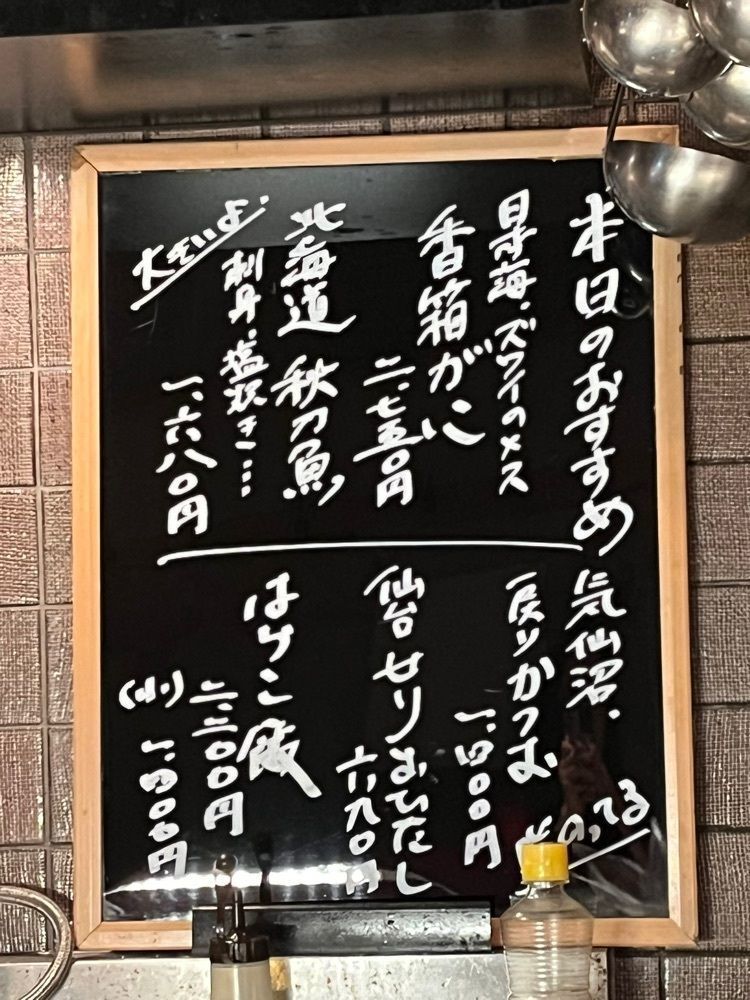 本日のおすすめ
日本海・ズワイのメス
香箱がに
二、七五〇円
北海道 秋刀魚
刺身・塩焼き…
大きいよ
一、六八〇円
気仙沼・
戻りかつお
のってる
一、四〇〇円
仙台せりおひたし
六九〇円
はらこ飯
二、二〇〇円
(小) 一、四〇〇円